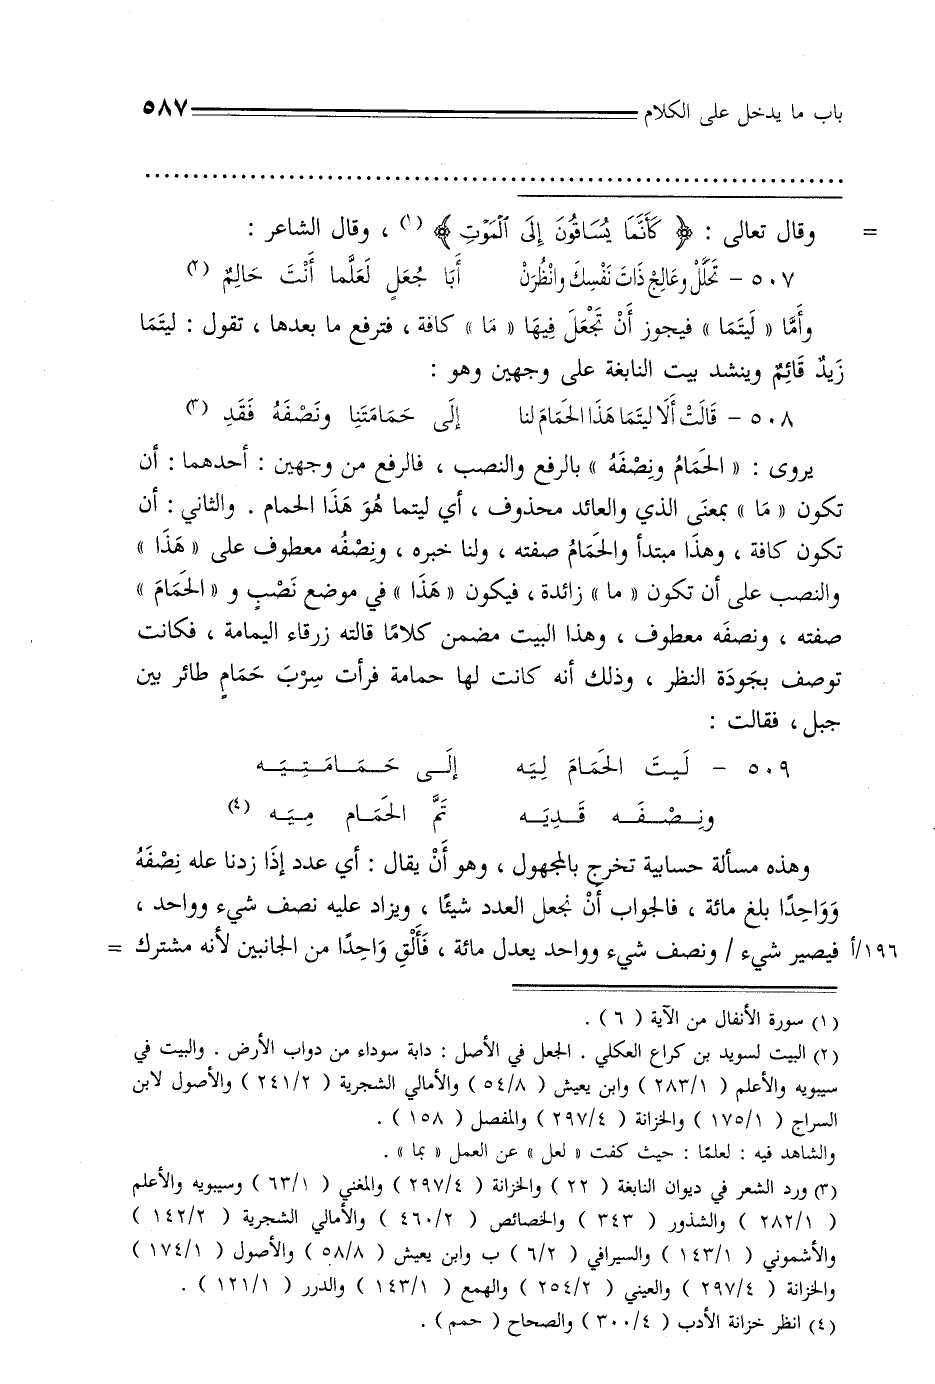 باب ما يدخل على الكلام ٥٨٧
= وقال تعالى : ﴿ كَأَنَّمَا يُسَاقُونَ إِلَى ٱلْمَوْتِ ﴾ (١) ، وقال الشاعر :
٥٠٧ – تَحَلَّلْ وعَالِجْ ذَاتَ نَفْسِكَ وانْظُرَنْ أَبَا جُعَلٍ لَعَلَّما أَنْتَ حَالِمٌ (٢)
وأَمَّا « لَيتَمَا » فيجوز أَنْ تَجْعَلَ فِيهَا « مَا » كافة ، فترفع ما بعدها ، تقول : ليتَمَا
زَيدٌ قَائِمٌ وينشد بيت النابغة على وجهين وهو :
٥٠٨ – قَالَتْ أَلَا ليتَمَا هَذَا الحَمَامَ لنا إِلَى حَمَامَتَنِا ونَصْفَهُ فَقَدِ (٣)
يروى : « الحَمَامُ ونِصْفَهُ » بالرفع والنصب ، فالرفع من وجهين : أحدهما : أن
تكون « مَا » بمعنَى الذي والعائد محذوف ، أي ليتما هُوَ هَذَا الحمام . والثاني : أن
تكون كافة ، وهذَا مبتدأ والحَمَامُ صفته ، ولنا خبره ، ونِصْفُه معطوف على « هَذَا »
والنصب على أن تكون « ما » زائدة ، فيكون « هَذَا » في موضع نَصْبٍ و « الحَمَامَ »
صفته ، ونصفَه معطوف ، وهذا البيت مضمن كلامًا قالته زرقاء اليمامة ، فكانت
توصف بجَودَة النظر ، وذلك أنه كانت لها حمامة فرأت سِرْبَ حَمَامٍ طائر بين
جبل ، فقالت :
٥٠٩ – لَيتَ الحَمَامَ لِيَه إِلَى حَمَامَتِيَه
ونِصْفَه قَدِيَه تَمَّ الحَمَام مِيَه (٤)
وهذه مسألة حسابية تخرج بالمجهول ، وهو أَنْ يقال : أي عدد إذَا زدنا عله نِصْفَهُ
وَوَاحِدًا بلغ مائة ، فالجواب أَنْ نجعل العدد شيئًا ، ويزاد عليه نصف شيء وواحد ،
١٩٦/أ فيصير شيء / ونصف شيء وواحد يعدل مائة ، فَأَلْقِ وَاحِدًا من الجانبين لأنه مشترك =
(١) سورة الأنفال من الآية ( ٦ ) .
(٢) البيت لسويد بن كراع العكلي . الجعل في الأصل : دابة سوداء من دواب الأرض . والبيت في
سيبويه والأعلم ( ٢٨٣/١ ) وابن يعيش ( ٥٤/٨ ) والأمالي الشجرية ( ٢٤١/٢ ) والأصول لابن
السراج ( ١٧٥/١ ) والخزانة ( ٢٩٧/٤ ) والمفصل ( ١٥٨ ) .
والشاهد فيه : لعلمًا : حيث كفت « لعل » عن العمل « بما » .
(٣) ورد الشعر في ديوان النابغة ( ٢٢ ) والخزانة ( ٢٩٧/٤ ) والمغني ( ٦٣/١ ) وسيبويه والأعلم
( ٢٨٢/١ ) والشذور ( ٣٤٣ ) والخصائص ( ٤٦٠/٢ ) والأمالي الشجرية ( ١٤٢/٢ )
والأشموني ( ١٤٣/١ ) والسيرافي ( ٦/٢ ) ب وابن يعيش ( ٥٨/٨ ) والأصول ( ١٧٤/١ )
والخزانة ( ٢٩٧/٤ ) والعيني ( ٢٥٤/٢ ) والهمع ( ١٤٣/١ ) والدرر ( ١٢١/١ ) .
(٤) انظر خزانة الأدب ( ٣٠٠/٤ ) والصحاح ( حمم ) .